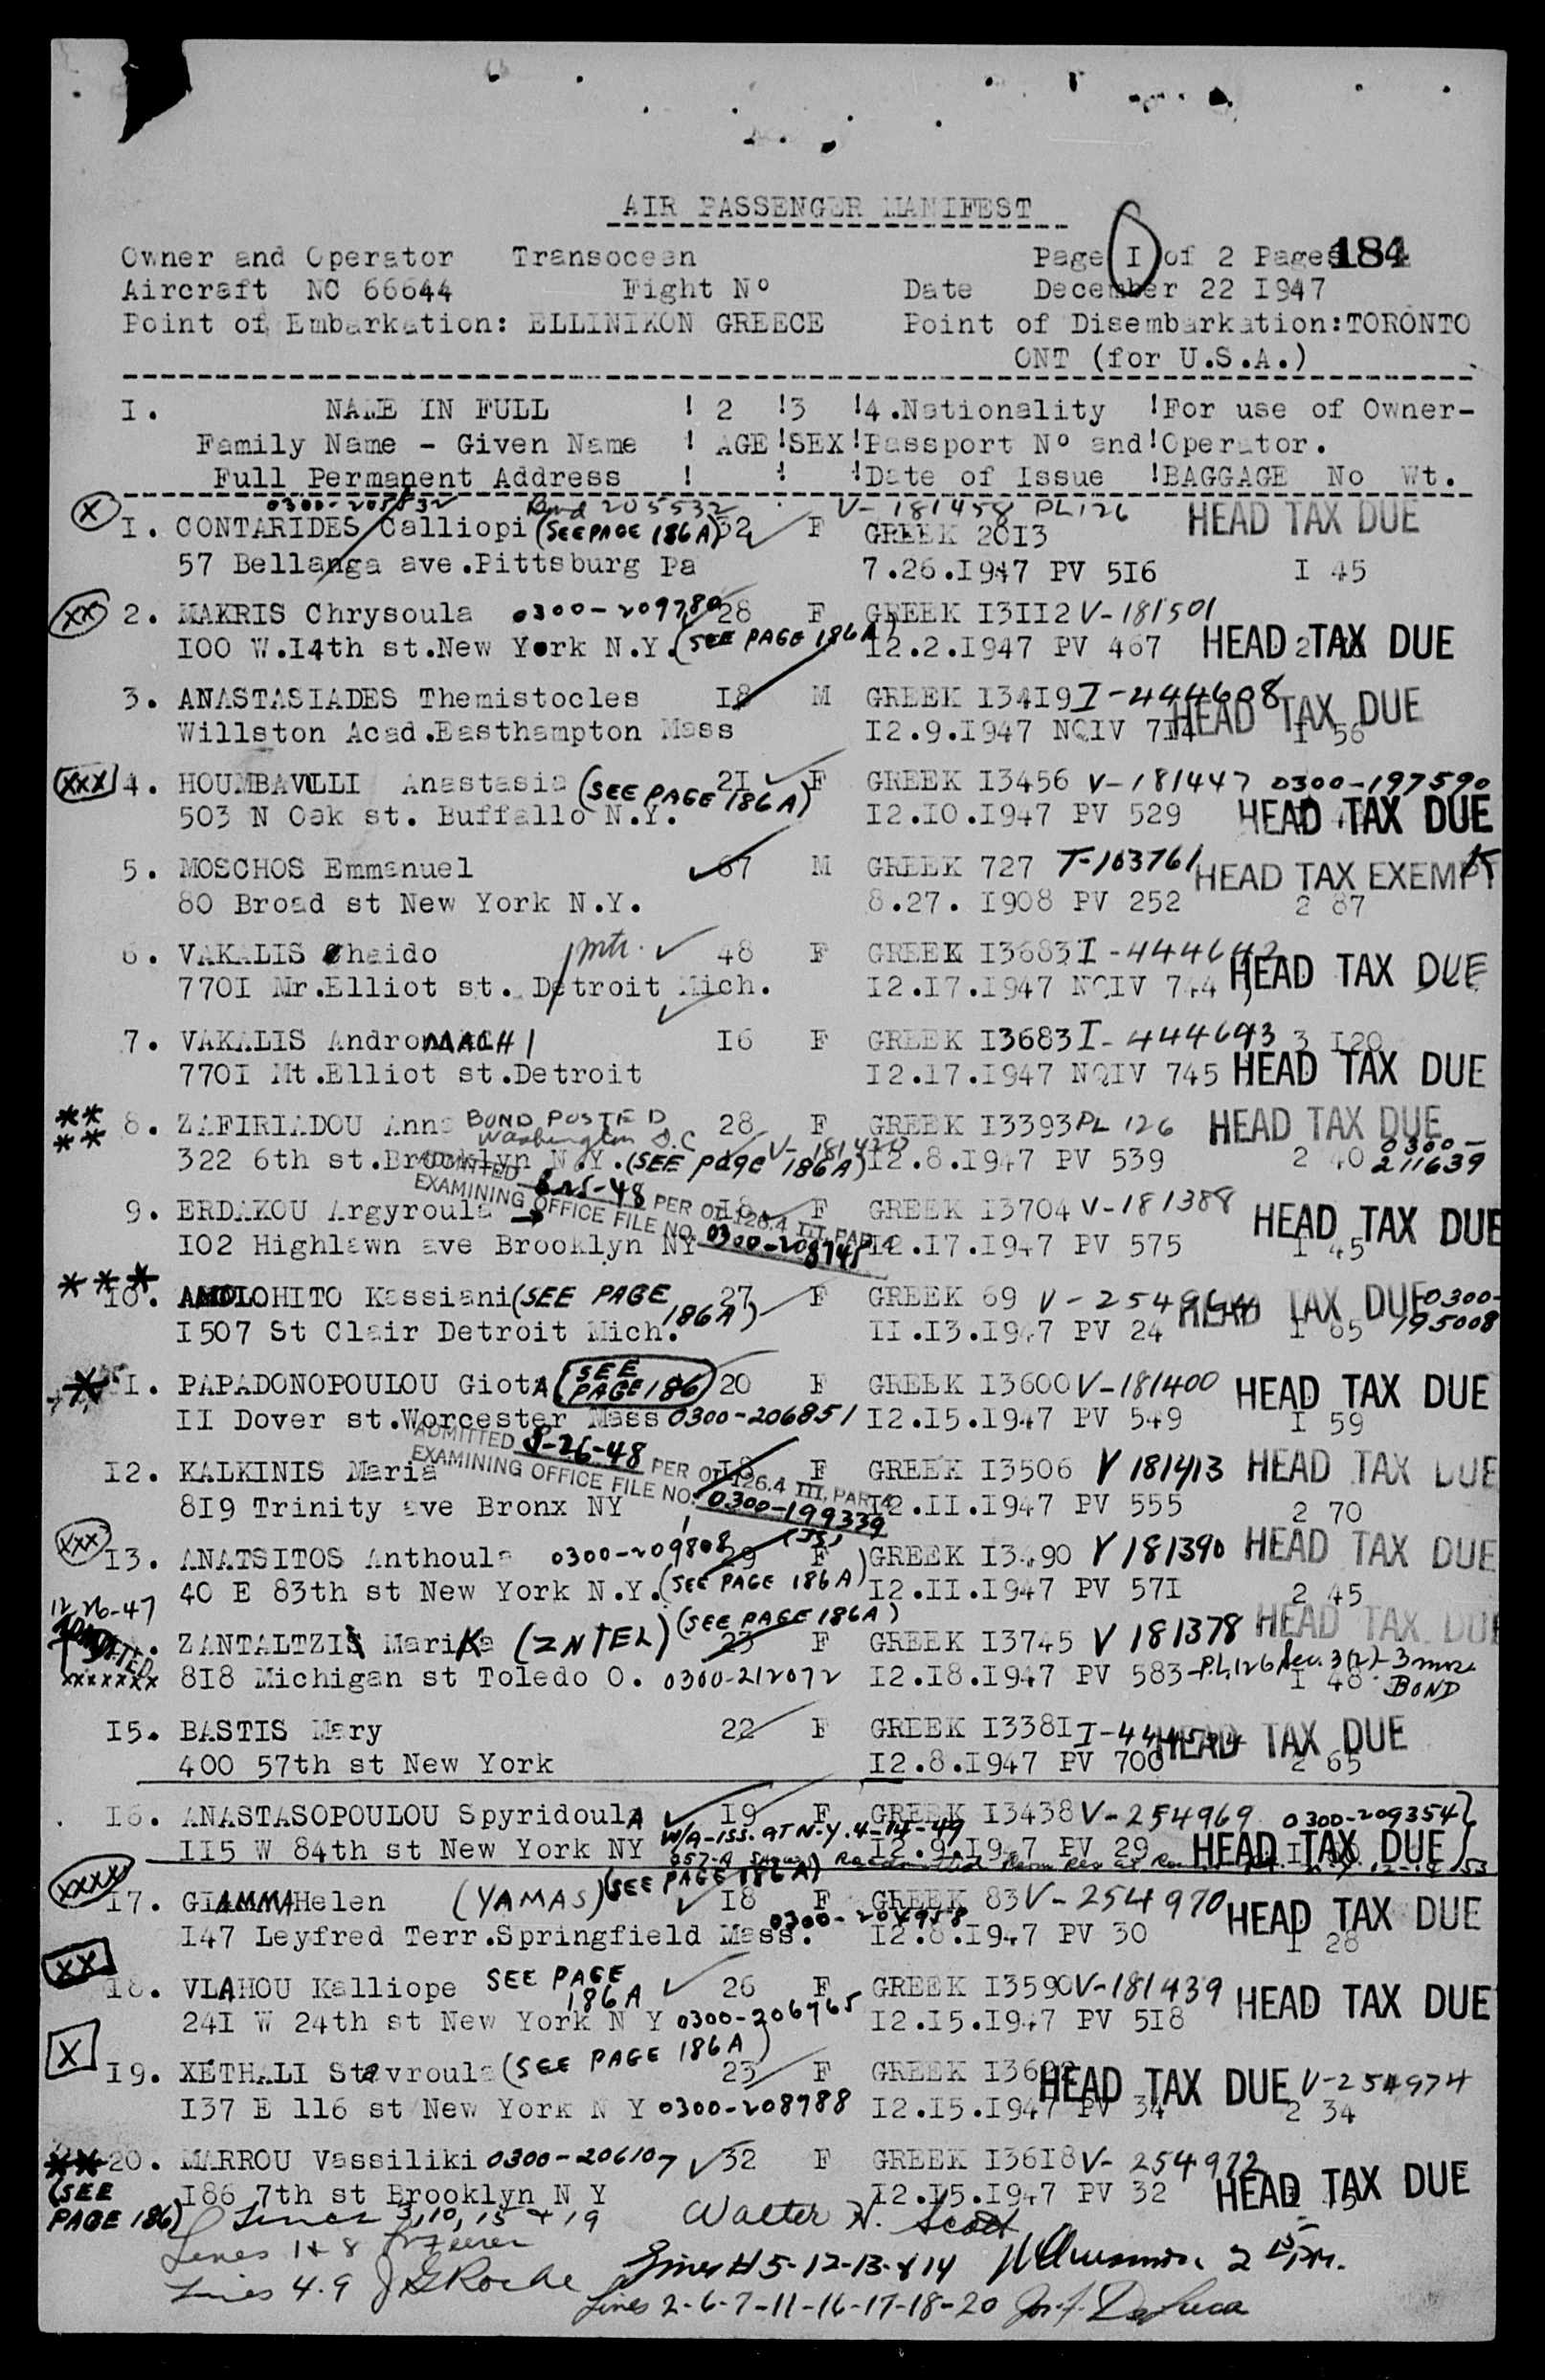 AIR PASSENGER MANIFEST
Owner and Operator Transocean Page I of 2 Pages 184
Aircraft NC 66644 Fight Nº Date December 22 I947
Point of Embarkation: ELLINIKON GREECE Point of Disembarkation:TORONTO
ONT (for U.S.A.)
I. NAME IN FULL ! 2 !3 !4.Nationality !For use of Owner-
Family Name - Given Name ! AGE !SEX !Passport Nº and !Operator.
Full Permanent Address ! ! !Date of Issue !BAGGAGE No Wt.
0300-205532 Bond 205532 V-181458 PL126
X I. CONTARIDES Calliopi (SEE PAGE 186A) 32 F GREEK 20I3 HEAD TAX DUE
57 Bellanga ave.Pittsburg Pa 7.26.I947 PV 5I6 I 45
XX 2. MAKRIS Chrysoula 0300-209780 28 F GREEK I3II2 V-181501
I00 W.I4th st.New York N.Y. (SEE PAGE 186A) I2.2.I947 PV 467 HEAD TAX DUE
3. ANASTASIADES Themistocles I8 M GREEK I34I9 I-444608
Willston Acad.Easthampton Mass I2.9.I947 NQIV 7I4 HEAD TAX DUE I 56
XXX 4. HOUMBAVILLI Anastasia (SEE PAGE 186A) 2I F GREEK I3456 V-181447 0300-197590
503 N Oak st. Buffallo N.Y. I2.I0.I947 PV 529 HEAD TAX DUE
5. MOSCHOS Emmanuel 67 M GREEK 727 T-103761 HEAD TAX EXEMPT
80 Broad st New York N.Y. 8.27. I908 PV 252 2 87
6. VAKALIS Chaido mtr. 48 F GREEK I3683 I-444642
770I Mr.Elliot st. Detroit Mich. I2.I7.I947 NQIV 744 HEAD TAX DUE
7. VAKALIS AndroMACHI I6 F GREEK I3683 I-444643 3 I20
770I Mt.Elliot st.Detroit I2.I7.I947 NQIV 745 HEAD TAX DUE
** ** 8. ZAFIRIADOU Anna BOND POSTED 28 F GREEK I3393 PL 126 HEAD TAX DUE
Washington D.C V-181420
322 6th st.Brooklyn N.Y. (SEE page 186A) I2.8.I947 PV 539 2 40 0300-211639
ADMITTED 8-25-48 PER OI 126.4 III, PAR 4
9. ERDAKOU Argyroula I8 F GREEK I3704 V-181388 HEAD TAX DUE
EXAMINING OFFICE FILE NO. 0300-208745
I02 Highlawn ave Brooklyn NY I2.I7.I947 PV 575 I 45
*** I0. AMOLOHITO Kassiani (SEE PAGE 186A) 27 F GREEK 69 V-254964 HEAD TAX DUE 0300-195008
I507 St Clair Detroit Mich. II.I3.I947 PV 24 I 65
* II. PAPADONOPOULOU GiotA (SEE PAGE 186) 20 F GREEK I3600 V-181400 HEAD TAX DUE
II Dover st.Worcester Mass 0300-206851 I2.I5.I947 PV 549 I 59
ADMITTED 8-26-48 PER OI 126.4 III, PAR 4
I2. KALKINIS Maria I8 F GREEK I3506 V 181413 HEAD TAX DUE
EXAMINING OFFICE FILE NO. 0300-199339
8I9 Trinity ave Bronx NY I2.II.I947 PV 555 2 70
XXX I3. ANATSITOS Anthoula 0300-209808 29 F GREEK I3490 V 181390 HEAD TAX DUE
40 E 83th st New York N.Y. (SEE PAGE 186A) I2.II.I947 PV 57I 2 45
12-26-47 ADMITTED ZANTALTZIS Marika (ZNTEL) (SEE PAGE 186A) 23 F GREEK I3745 V 181378 HEAD TAX DUE
xxxxxxx 8I8 Michigan st Toledo O. 0300-212072 I2.I8.I947 PV 583 -P.L.126 Sec. 3(2)-3 mos. BOND I 48
I5. BASTIS Mary 22 F GREEK I338I HEAD TAX DUE
400 57th st New York I2.8.I947 PV 700 2 65
I6. ANASTASOPOULOU SpyridoulA I9 F GREEK I3438 V-254969 0300-209354
II5 W 84th st New York NY W/A-ISS. AT N.Y. 4-14-49 I2.9.I947 PV 29 HEAD TAX DUE
XXXX I7. GIAMMA Helen (YAMAS) (SEE PAGE 186A) I8 F GREEK 83 V-254970 HEAD TAX DUE
I47 Leyfred Terr.Springfield Mass. 0300-204958 I2.8.I947 PV 30 I 28
XX I8. VLAHOU Kalliope SEE PAGE 186A 26 F GREEK I3590 V-181439 HEAD TAX DUE
24I W 24th st New York N Y 0300-206765 I2.I5.I947 PV 5I8
X I9. XETHALI Stavroula (SEE PAGE 186A) 23 F GREEK HEAD TAX DUE V-254974
I37 E 116 st New York N Y 0300-208788 I2.I5.I947 PV 34 2 34
** 20. MARROU Vassiliki 0300-206107 32 F GREEK I36I8 V-254972
(SEE PAGE 186) I86 7th st Brooklyn N Y I2.I5.I947 PV 32 HEAD TAX DUE
Lines 3,10,15 + 19 Walter H. Scott
Lines 1 + 8
Lines 4.9 J G Roche Lines # 5-12-13-&14
Lines 2-6-7-11-16-17-18-20 Jos. J. DeLuca